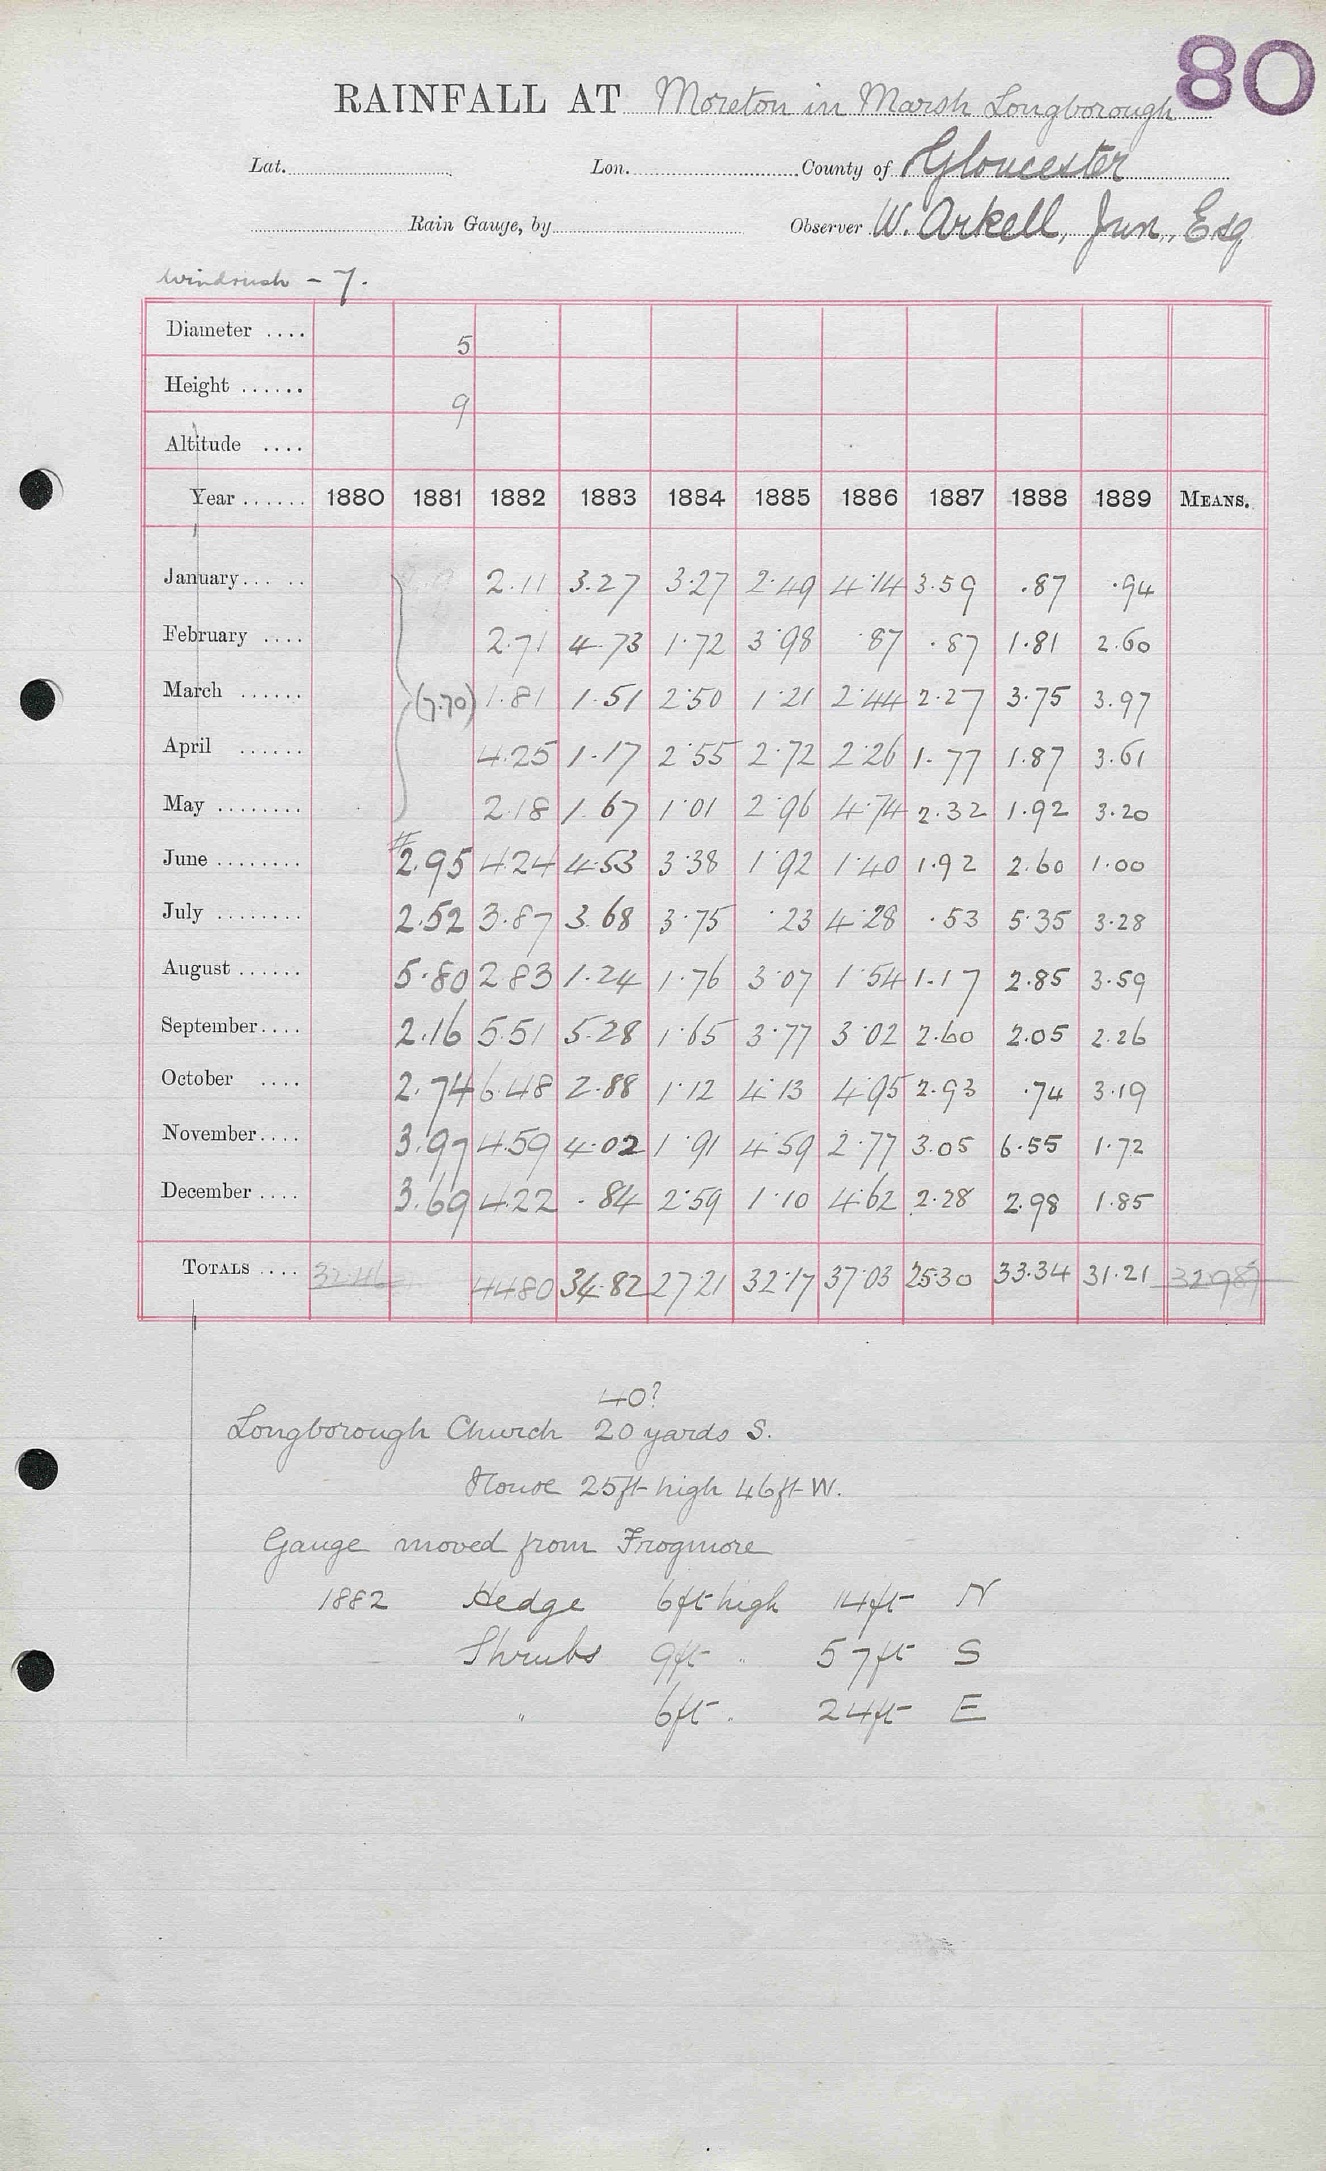 80
RAINFALL AT Moreton in Marsh Longborough
Lat. Lon. County of Gloucester
Rain Gauge, by Observer W. Arkell, Jun., Esq
Windrush - 7.
Diameter .... 5
Height ...... 9
Altitude ....
Year ...... 1880 1881 1882 1883 1884 1885 1886 1887 1888 1889 MEANS.
January... .. 2.11 3.27 3.27 2.49 4.14 3.59 .87 .94
February .... 2.71 4.73 1.72 3.98 .87 .87 1.81 2.60
March ...... (7.70) 1.81 1.51 2.50 1.21 2.44 2.27 3.75 3.97
April ...... 4.25 1.17 2.55 2.72 2.26 1.77 1.87 3.61
May ........ 2.18 1.67 1.01 2.96 4.74 2.32 1.92 3.20
June ........ #2.95 4.24 4.53 3.38 1.92 1.40 1.92 2.60 1.00
July ........ 2.52 3.87 3.68 3.75 .23 4.28 .53 5.35 3.28
August ...... 5.80 2.83 1.24 1.76 3.07 1.54 1.17 2.85 3.59
September.... 2.16 5.51 5.28 1.65 3.77 3.02 2.60 2.05 2.26
October .... 2.74 6.48 2.88 1.12 4.13 4.95 2.93 .74 3.19
November.... 3.97 4.59 4.02 1.91 4.59 2.77 3.05 6.55 1.72
December .... 3.69 4.22 .84 2.59 1.10 4.62 2.28 2.98 1.85
TOTALS .... 32.46 44.80 34.82 27.21 32.17 37.03 25.30 33.34 31.21 32.98
40?
Longborough Church 20 yards S.
House 25ft high 46ft W.
Gauge moved from Frogmore
1882 Hedge 6ft high 14ft N
Shrubs 9ft " 57ft S
" 6ft " 24ft E